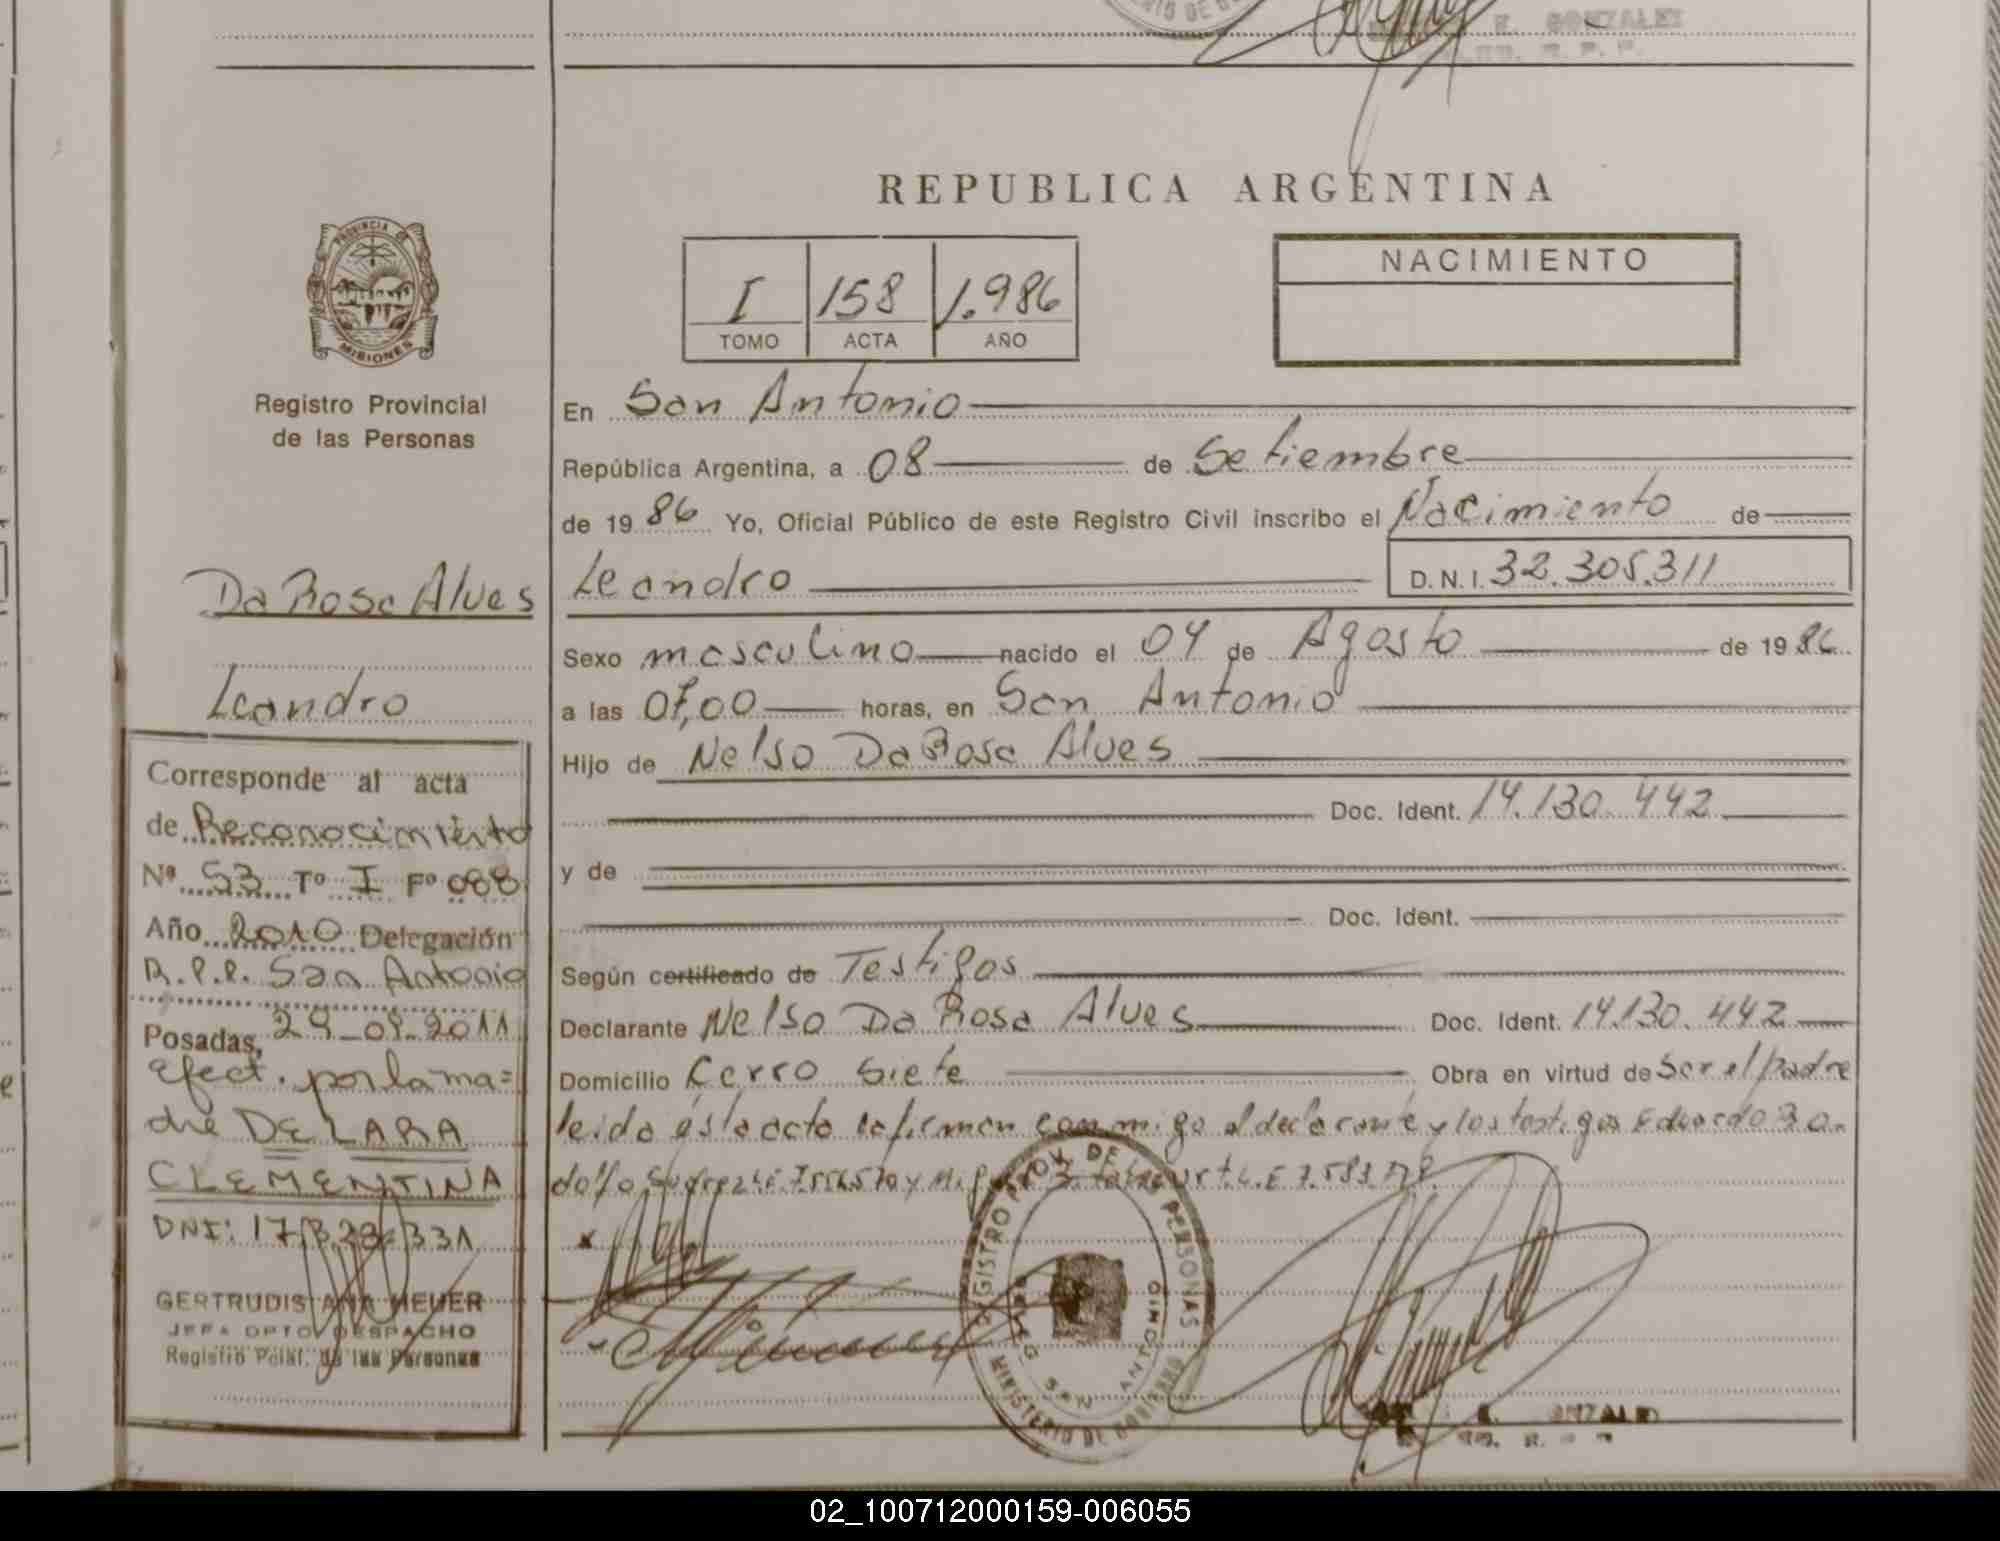 E. GONZALEZ
REPUBLICA ARGENTINA
PROVINCIA DE
MISIONES
Registro Provincial
de las Personas
I 158 1.986
TOMO ACTA AÑO
NACIMIENTO
En San Antonio
República Argentina, a 08 de Setiembre
de 1986 Yo, Oficial Público de este Registro Civil inscribo el Nacimiento de
Leandro D.N.I. 32.305.311
Sexo masculino nacido el 04 de Agosto de 1986
a las 07,00 horas, en San Antonio
Hijo de Nelso Da Rosa Alves
Doc. Ident. 14.130.442
y de
Doc. Ident.
Según certificado de Testigos
Declarante Nelso Da Rosa Alves Doc. Ident. 14.130.442
Domicilio Cerro Siete Obra en virtud de Ser el padre
leida ésta acta la firman conmigo el declarante y los testigos Eduardo Ro
dolfo
REGISTRO PROV. DE LAS PERSONAS
MINISTERIO DE GOBIERNO
SAN ANTONIO
Da Rosa Alves
Leandro
Corresponde al acta
de Reconocimiento
Nº 53 Tº I Fº 088
Año 2010 Delegación
R.P.P. San Antonio
Posadas, 29-09-2011
efect. por la ma=
dre DE LARA
CLEMENTINA
DNI: 17.328.331
GERTRUDIS ANA MEUER
JEFA DPTO DESPACHO
Registro Pcial. de las Personas
02_100712000159-006055